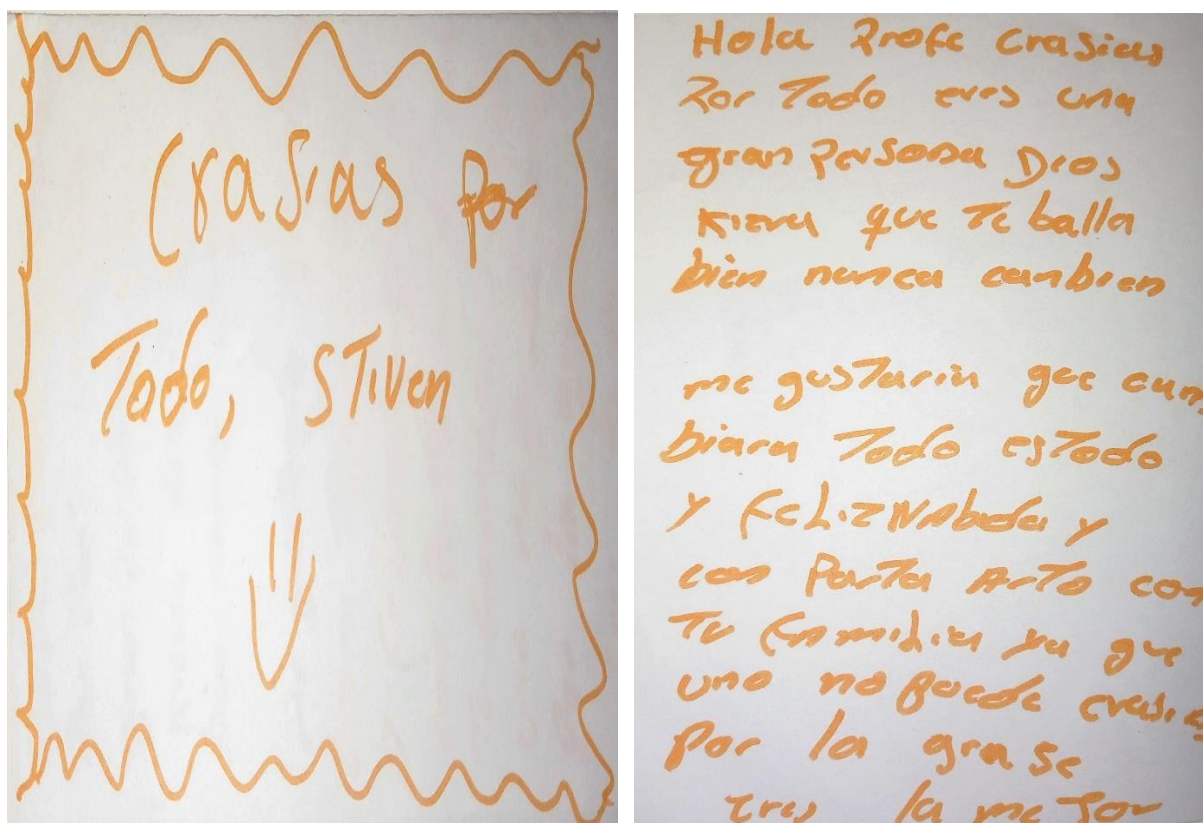 Crasias por
Todo, STiven
Hola Profe Crasias
Por Todo eres una
gran Persona Dios
Kiera que Te balla
bien nunca cambien
me gusTaria que cam
biara Todo esTodo
y FeLiz NAbada y
com ParTa ArTo con
Tu Familia ya que
uno no puede crasias
Por la gra se
eres la me Jor